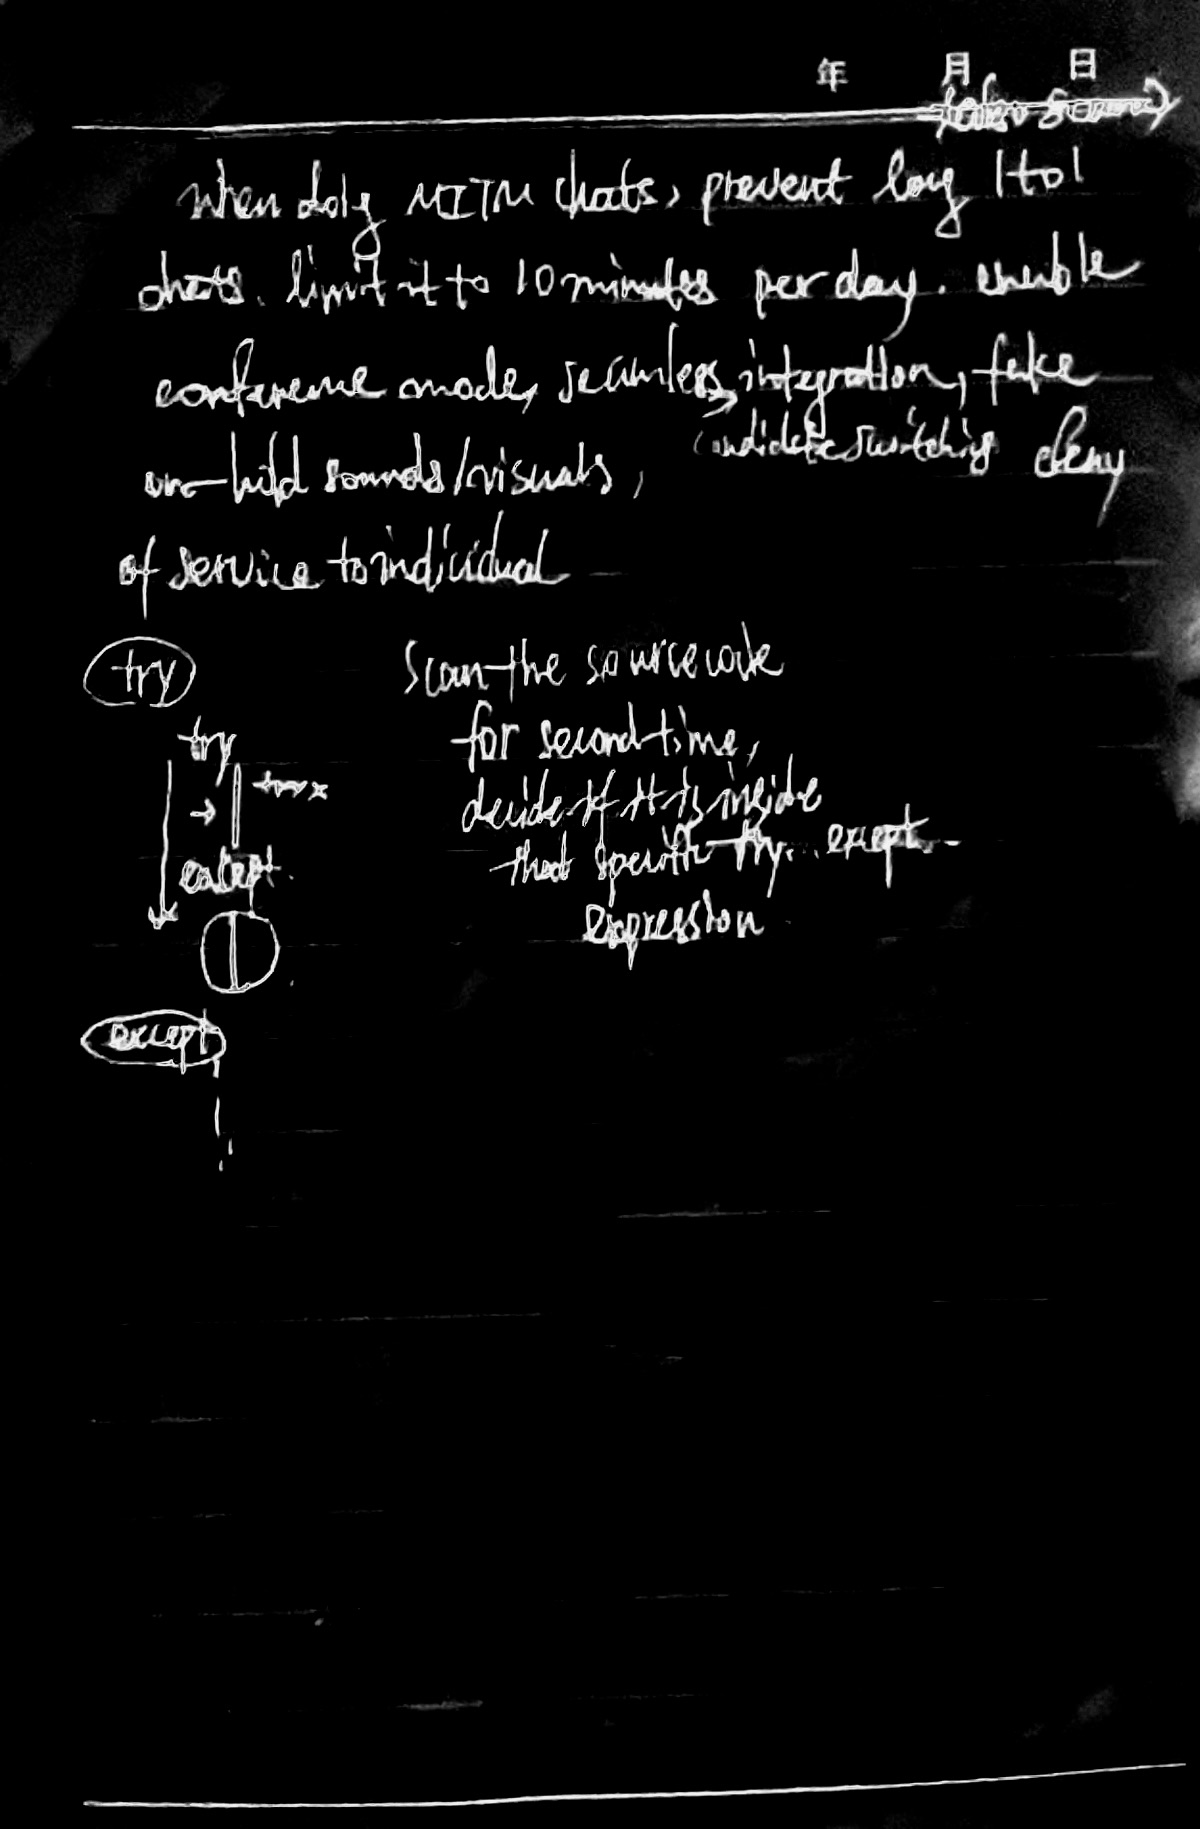 年 月 日
when doig MITM chats, prevent long 1to1
chats. limit it to 10 minutes per day. enable
conference mode, seamless integration, fake
candidate switching
on-hold sounds/visuals, deny
of service to individual
try
scan the source code
try
for second time,
decide if it is inside
except.
that specific try...except
expression
except